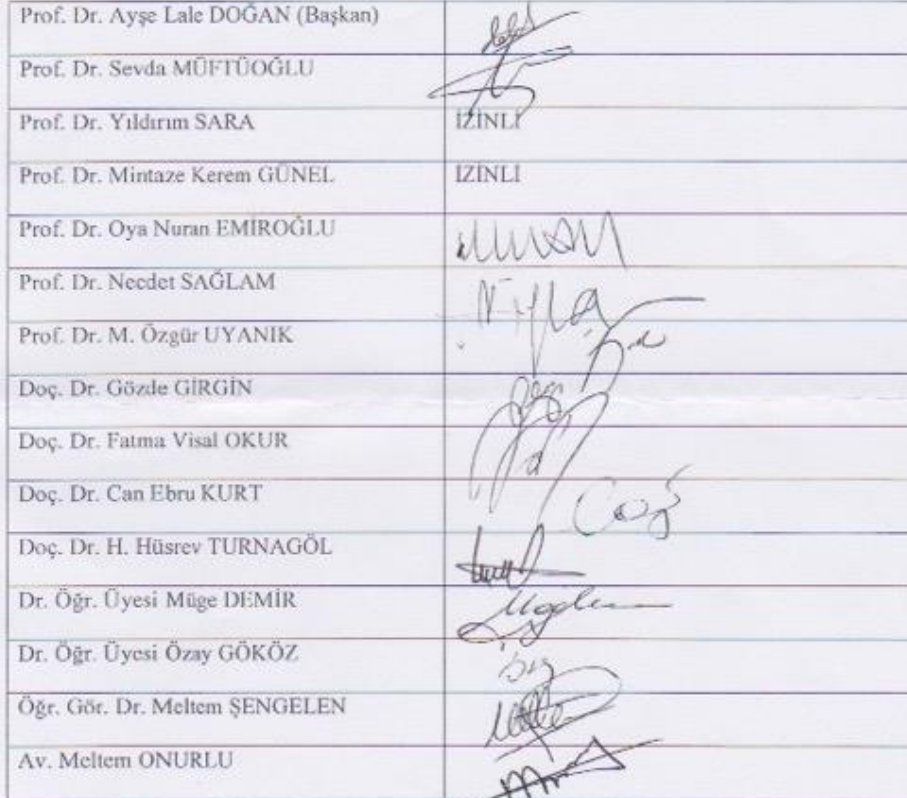 Prof. Dr. Ayşe Lale DOĞAN (Başkan)
Prof. Dr. Sevda MÜFTÜOĞLU
Prof. Dr. Yıldırım SARA İZİNLİ
Prof. Dr. Mintaze Kerem GÜNEL İZİNLİ
Prof. Dr. Oya Nuran EMİROĞLU
Prof. Dr. Necdet SAĞLAM
Prof. Dr. M. Özgür UYANIK
Doç. Dr. Gözde GİRGİN
Doç. Dr. Fatma Visal OKUR
Doç. Dr. Can Ebru KURT
Doç. Dr. H. Hüsrev TURNAGÖL
Dr. Öğr. Üyesi Müge DEMİR
Dr. Öğr. Üyesi Özay GÖKÖZ
Öğr. Gör. Dr. Meltem ŞENGELEN
Av. Meltem ONURLU